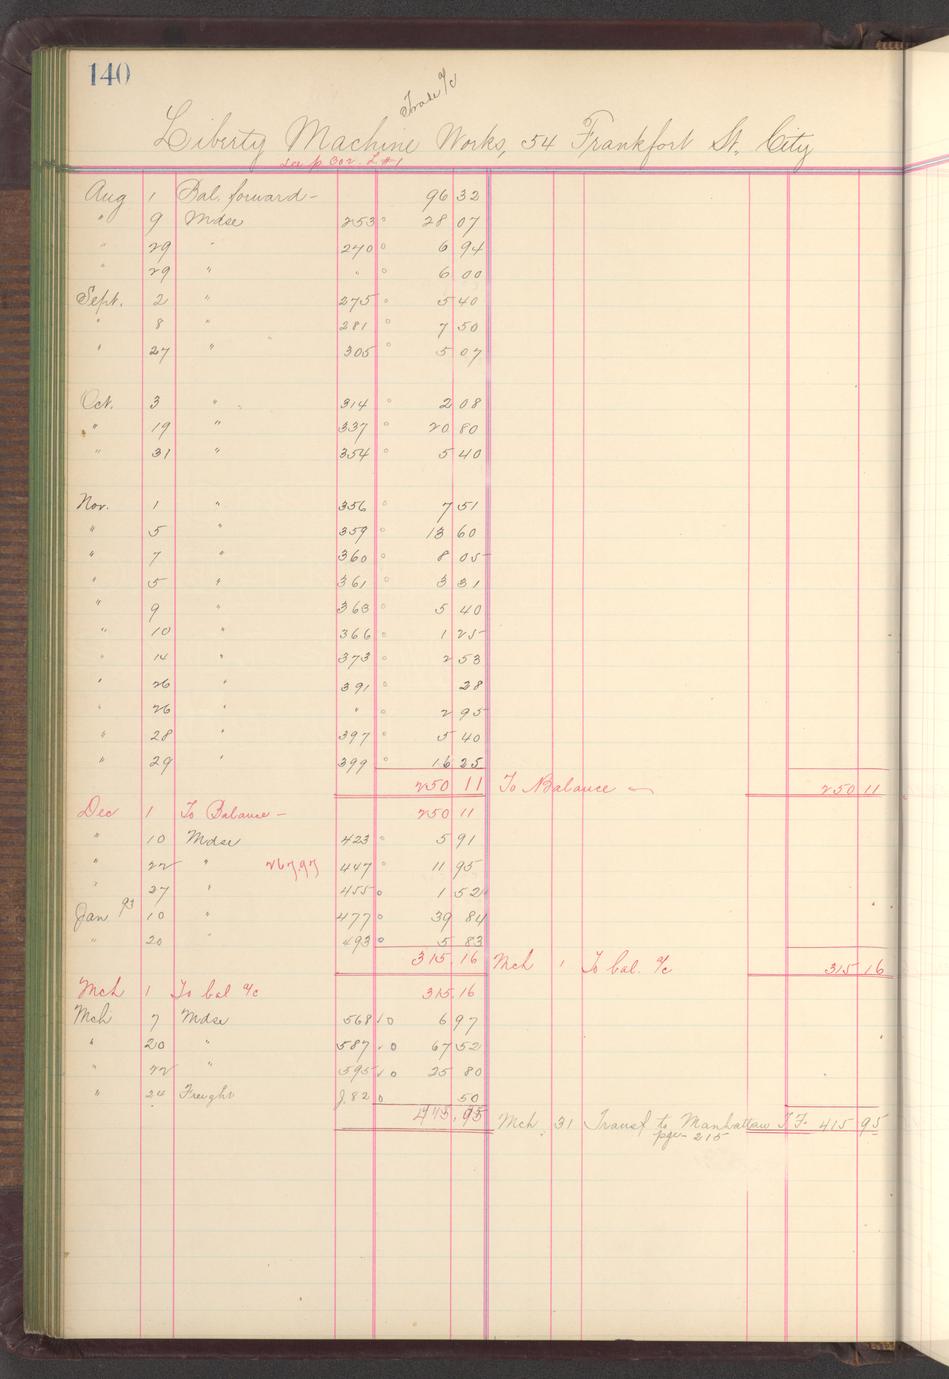 140
Trade a/c
Liberty Machine Works, 54 Frankfort St. City
Aug 1 Bal. forward — 96 32
" 9 Mdse 253 28 07
" 29 " 240 6 94
" 29 " " 6 00
Sept. 2 " 275 5 40
" 8 " 281 7 50
" 27 " 305 5 07
Oct. 3 " 314 2 08
" 19 " 337 20 80
" 31 " 354 5 40
Nov. 1 " 356 7 51
" 5 " 359 13 60
" 7 " 360 8 05
" 5 " 361 3 31
" 9 " 363 5 40
" 10 " 366 1 25
" 14 " 373 2 53
" 26 " 391 28
" 26 " " 2 95
" 28 " 397 5 40
" 29 " 399 16 25
250 11 To Balance — 250 11
Dec 1 To Balance — 250 11
" 10 Mdse 423 5 91
" 22 " 26797 447 11 95
" 27 " 455 1 52
Jan 93 10 " 477 39 84
" 20 " 493 5 83
315.16 Mch 1 To bal. a/c 315 16
Mch 1 To bal a/c 315.16
Mch 7 Mdse 568 6 97
" 20 " 587 67 52
" 22 " 595 25 80
" 24 Freight J. 82 50
415.95 Mch 31 Transf to Manhattan T.F. 415 95
page 215